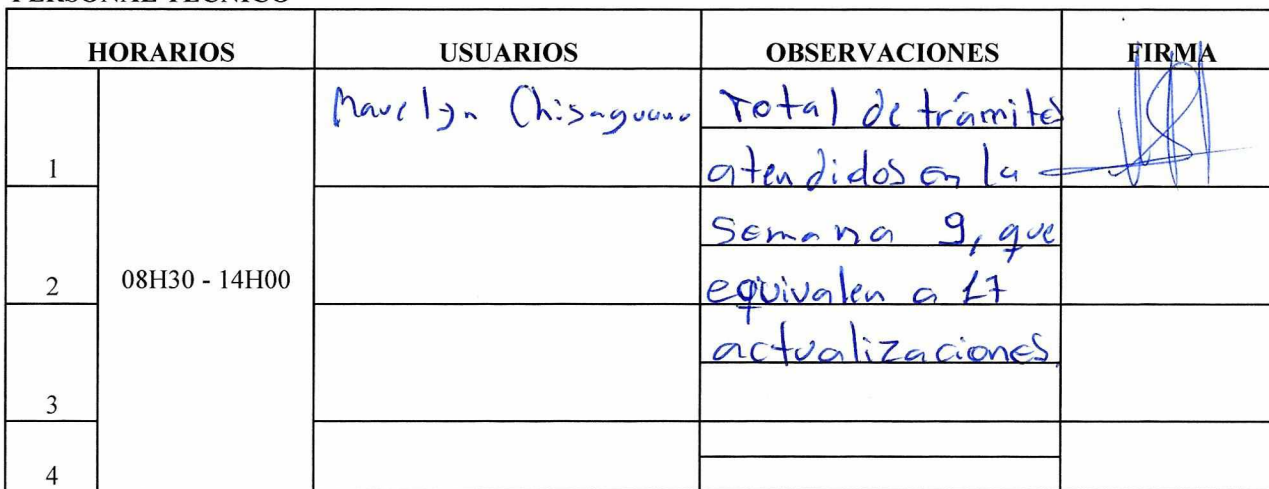 PERSONAL TÉCNICO
HORARIOS USUARIOS OBSERVACIONES FIRMA
1 08H30 - 14H00 Total de trámites
atendidos en la
2 semana 9, que
equivalen a 17
3 actualizaciones.
4